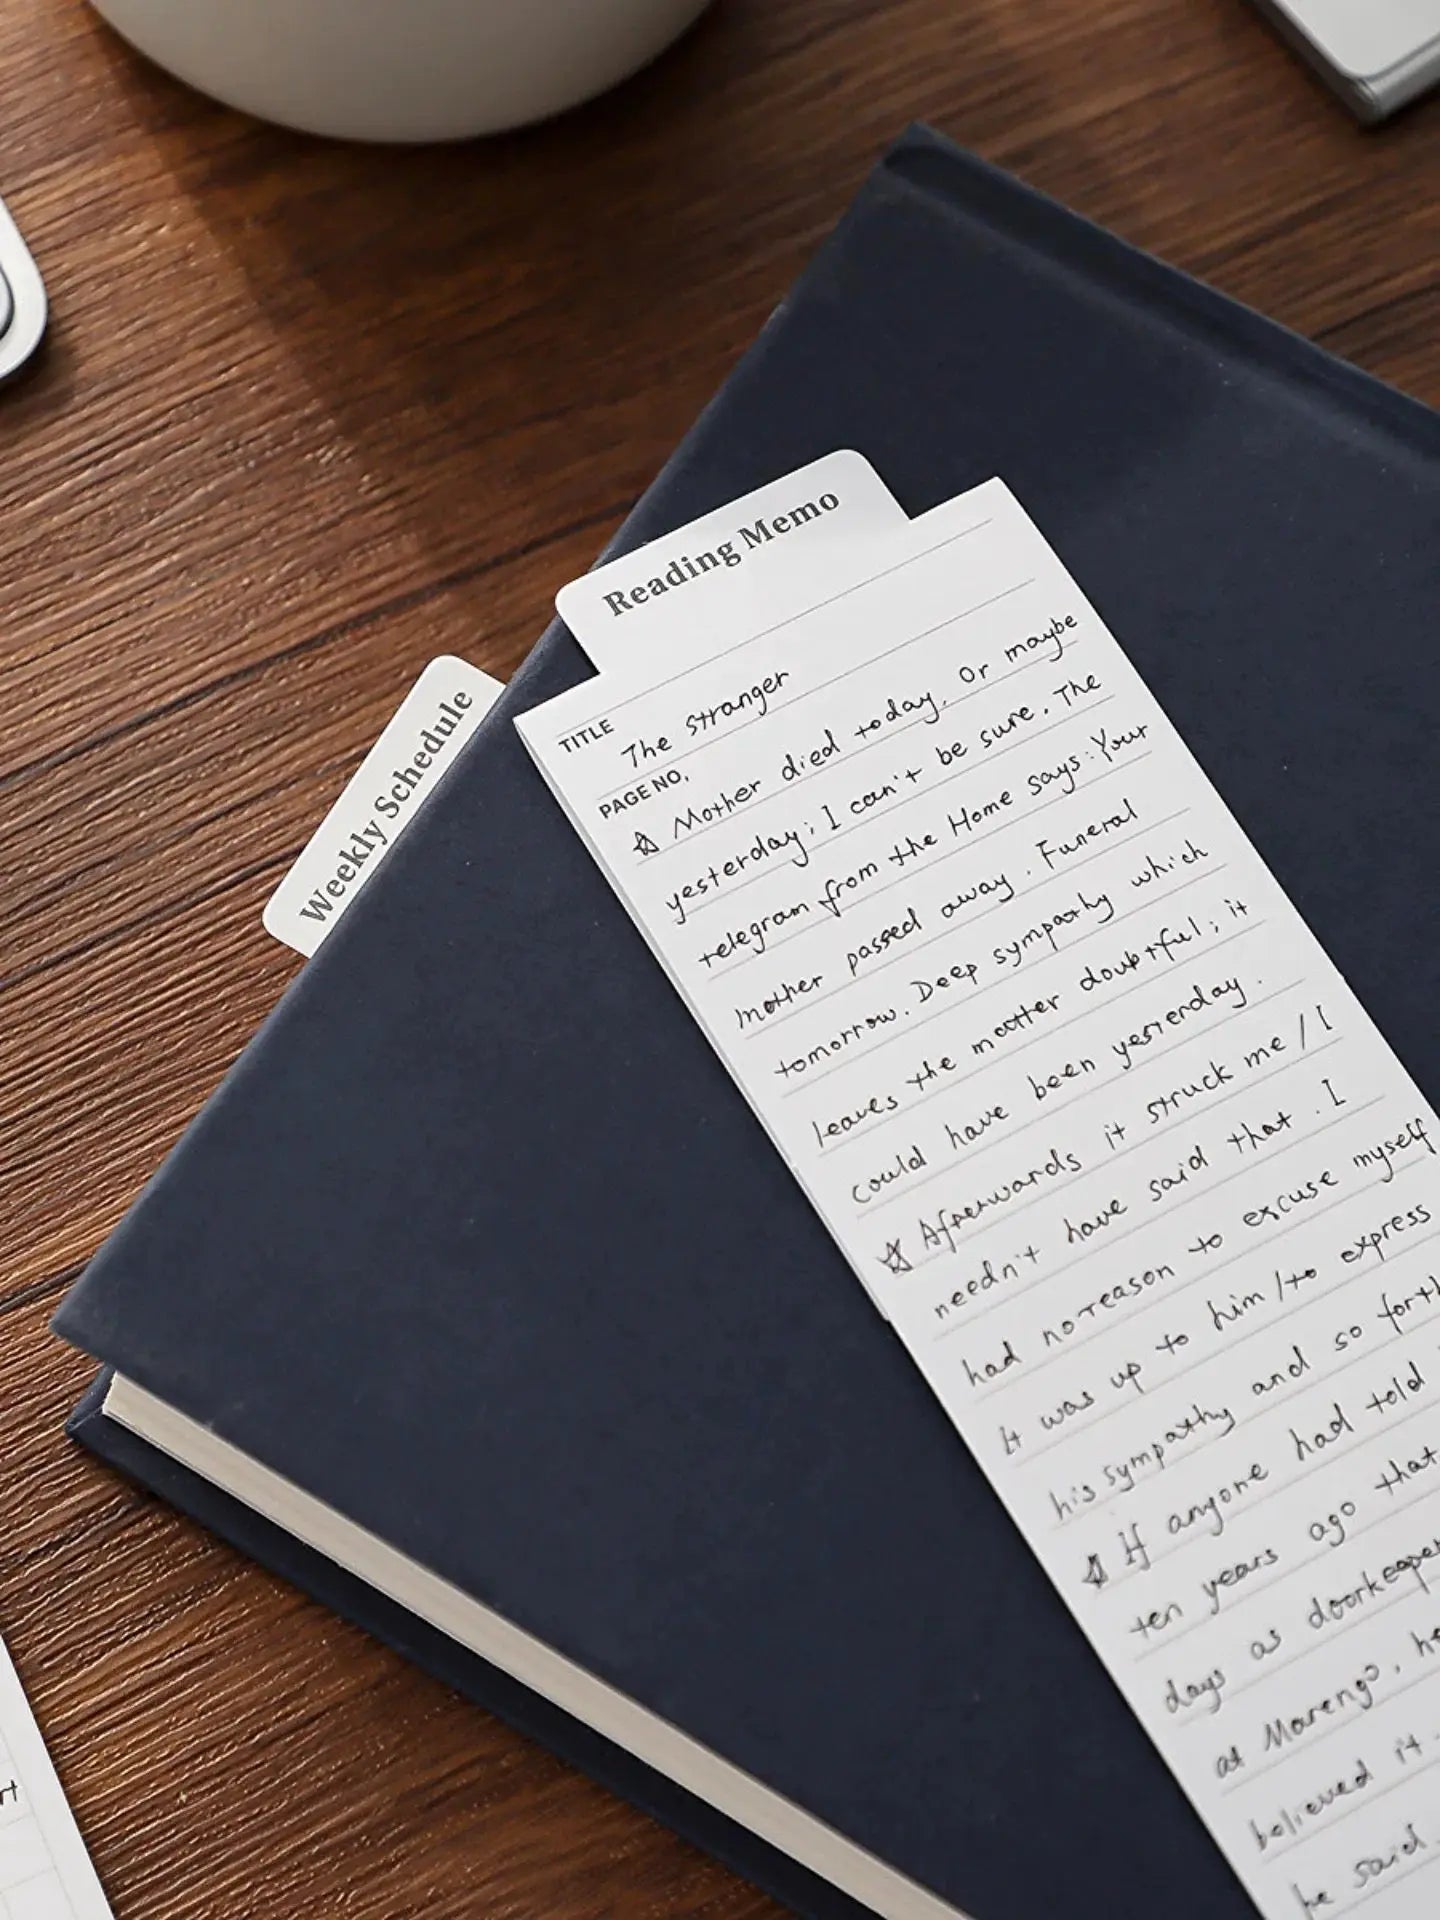 Reading Memo
Weekly Schedule
TITLE
The stranger
PAGE NO.
☆ Mother died today. Or maybe
yesterday; I can't be sure. The
telegram from the Home says: Your
mother passed away. Funeral
tomorrow. Deep sympathy which
leaves the matter doubtful; it
could have been yesterday.
☆ Afterwards it struck me / I
needn't have said that. I
had no reason to excuse myself
It was up to him / to express
his sympathy and so forth
☆ If anyone had told
ten years ago that
days as doorkeeper
at Marengo, he
believed it
he said.